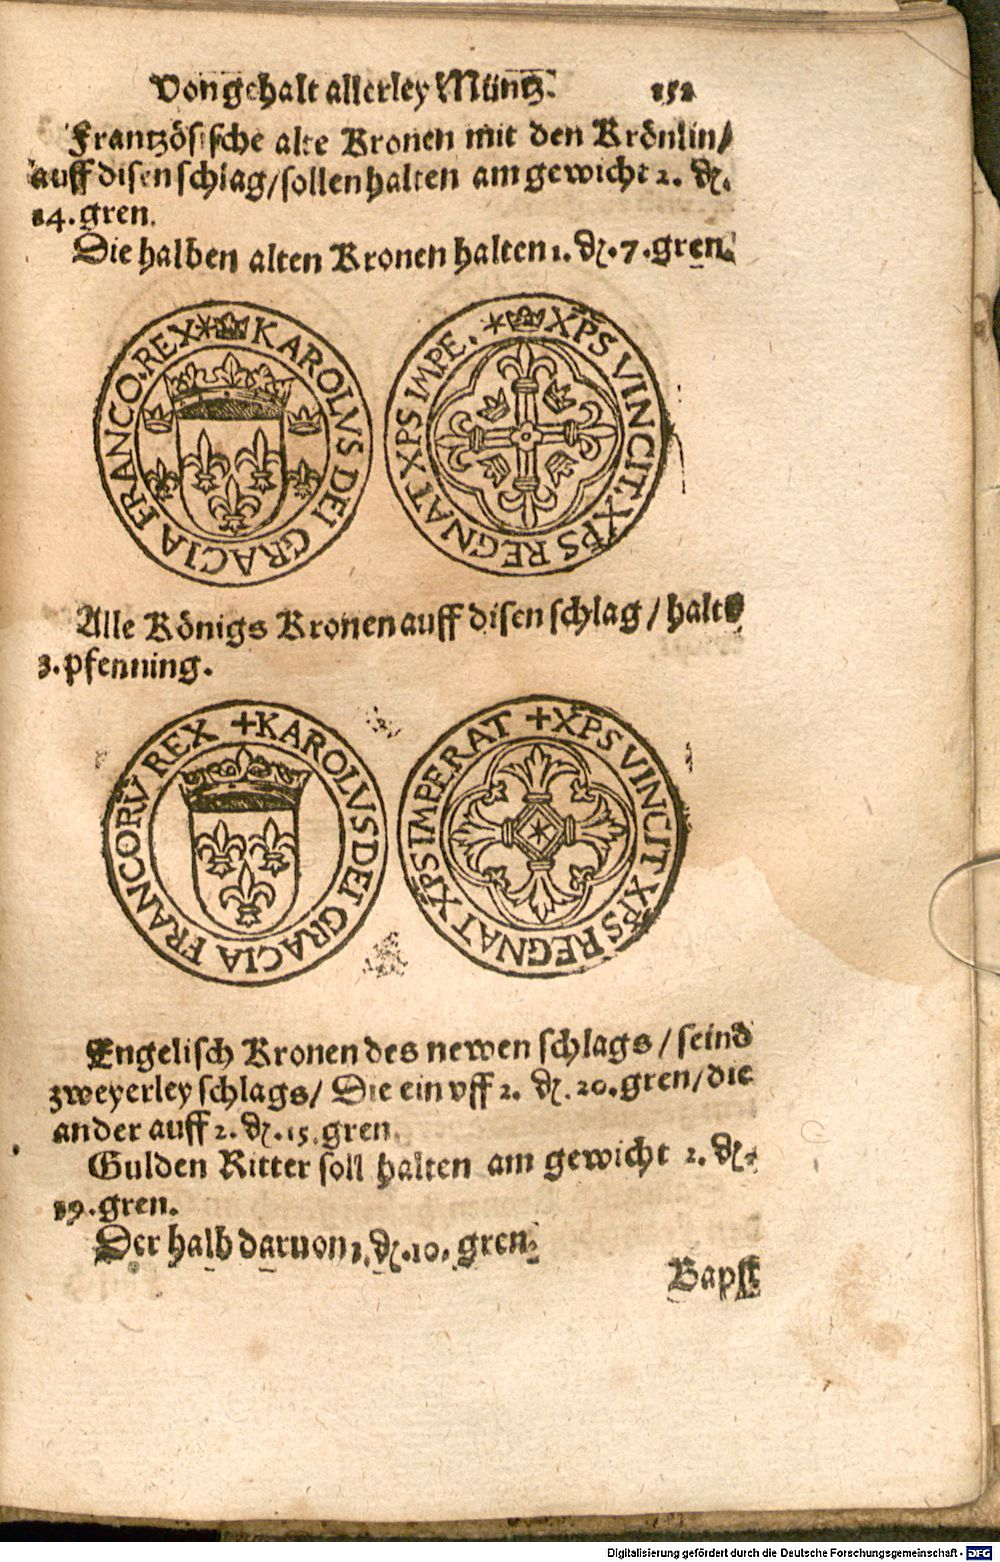 Von gehalt allerley Müntz. 152
Frantzösische alte Kronen mit den Krönlin/
auff disen schlag/ sollen halten am gewicht 2. ₰.
14. gren.
Die halben alten Kronen halten 1. ₰. 7. gren.
*KAROLVS DEI GRACIA FRANCO. REX
*XP̄S VINCIT. XP̄S REGNAT XPS IMPE.
Alle Königs Kronen auff disen schlag / halt
3. pfenning.
+KAROLVS DEI GRACIA FRANCORV̄ REX
+XPS VINCIT XP̄S REGNAT XPS IMPERAT
Engelisch Kronen des newen schlags / seind
zweyerley schlags/ Die ein vff 2. ₰. 20. gren/ die
ander auff 2. ₰. 15. gren.
Gulden Ritter soll halten am gewicht 2. ₰.
19. gren.
Der halb daruon 1. ₰. 10. gren.
Bapst
Digitalisierung gefördert durch die Deutsche Forschungsgemeinschaft - DFG